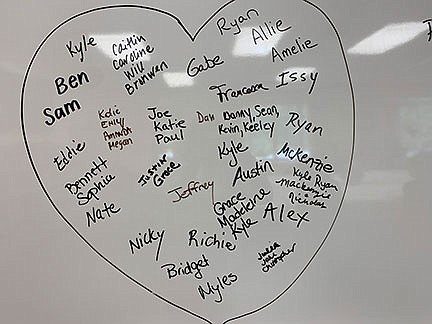 Ryan
Kyle
Caitlin
Caroline
Will
Brunwan
Allie
Amelie
Gabe
Ben
Francesca
Issy
Sam
Katie
Emily
Amanda
Megan
Joe
Katie
Paul
Dan
Danny, Sean,
Kevin, Keeley
Ryan
Eddie
Kyle
McKenzie
Bennett
Sophia
Justin
Grace
Austin
Kyle Ryan
Mackenzie
Nicholas
Jeffrey
Nate
Grace
Madeleine
Kyle
Alex
Nicky
Richie
Bridget
Julia
Myles